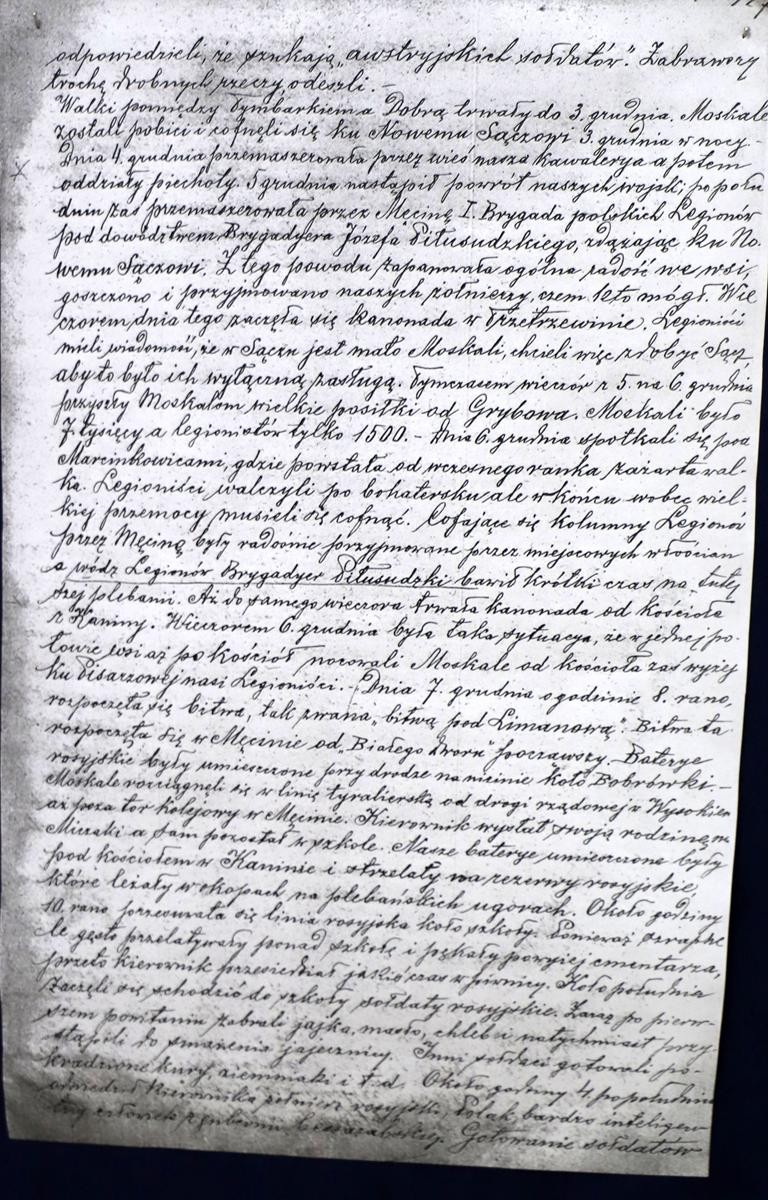 odpowiedzieli, że szukają „awstryjskich sołdatów". Zabrawszy
trochę drobnych rzeczy, odeszli. —
Walki pomiędzy Tymbarkiem a Dobrą trwały do 3. grudnia. Moskale
zostali pobici i cofnęli się ku Nowemu Sączowi 3. grudnia w nocy. —
Dnia 4. grudnia przemaszerowała przez wieś nasza kawalerya a potem
oddziały piechoty. 5 grudnia nastąpił powrót naszych wojsk; po połu
dniu zaś przemaszerowała przez Męcinę I. Brygada polskich Legionów
pod dowództwem Brygadyera Józefa Piłsudzkiego, zdążając ku No-
wemu Sączowi. Z tego powodu zapanowała ogólna radość we wsi,
goszczono i przyjmowano naszych żołnierzy, czem kto mógł. Wie
czorem dnia tego zaczęła się kanonada w Trzetrzewinie. Legioniści
mieli wiadomość, że w Sączu jest mało Moskali, chcieli więc zdobyć Sącz,
aby to było ich wyłączną zasługą. Tymczasem wieczór z 5. na 6. grudnia
przyszły Moskalom wielkie posiłki od Grybowa. Moskali było
7 tysięcy a legionistów tylko 1500. — Dnia 6. grudnia spotkali się pod
Marcinkowicami, gdzie powstała od wczesnego ranka zażarta wal-
ka. Legioniści walczyli po bohatersku, ale w końcu wobec wiel-
kiej przemocy musieli się cofnąć. Cofające się kolumny Legionów
przez Męcinę były radośnie przyjmowane przez miejscowych włościan
a wódz Legionów Brygadyer Piłsudzki bawił krótki czas na tutej
szej plebanii. Aż do samego wieczora trwała kanonada od kościoła
z Kaniny. Wieczorem 6. grudnia była taka sytuacya, że w jednej po-
łowie wsi aż po kościół nocowali Moskale od kościoła zaś wyżej
ku Pisarzowej nasi Legioniści. — Dnia 7. grudnia o godzinie 8. rano,
rozpoczęła się bitwa, tak zwana „bitwą pod Limanową". Bitwa ta
rozpoczęła się w Męcinie od „Białego dworu" począwszy. Baterye
rosyjskie były umieszczone przy drodze na nizinie koło Bobrówki —
Moskale rozciągnęli się w linię tyralierską od drogi rządowej w Wysokiem
aż poza tor kolejowy w Męcinie. Kierownik wysłał swoją rodzinę
Miczaki a sam pozostał w szkole. Nasze baterye umieszczone były
pod kościołem w Kaninie i strzelały na rezerwy rosyjskie,
które leżały w okopach na plebańskich ugorach. Około godziny
10. rano przesuwała się linia rosyjska koło szkoły. Ponieważ szrapne
le gęsto przelatywały ponad szkołę i pękały powyżej cmentarza,
przeto kierownik przesiedział jakiś czas w piwnicy. Koło południa
zaczęli się schodzić do szkoły sołdaty rosyjskie. Zaraz po pierw-
szem powitaniu zabrali jajka, masło, chleb i natychmiast przy-
stąpili do smażenia jajecznicy. Inni sołdaci gotowali po-
kradzione kury, ziemniaki i t. d. Około godziny 4. po południu
odwiedził kierownika żołnierz rosyjski, Polak, bardzo inteligen
tny człowiek z gubernii Gotowanie sołdatów